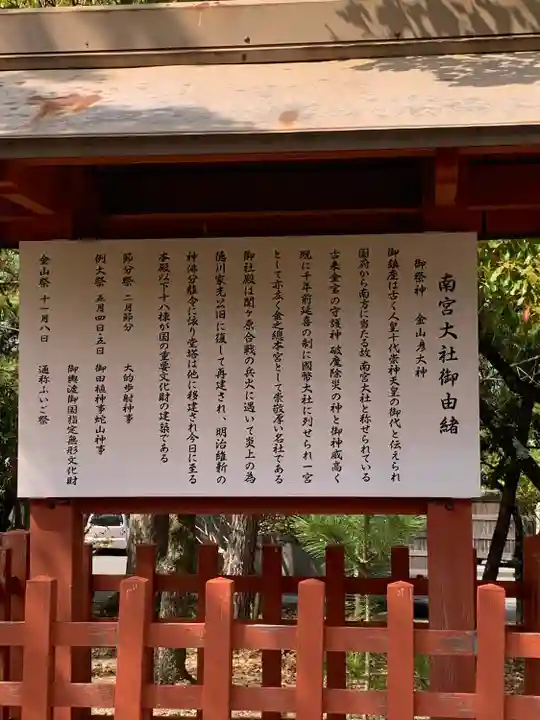 南宮大社御由緒
御祭神 金山彦大神
御鎮座は古く人皇十代崇神天皇の御代と伝えられ
国府から南方に当たる故 南宮大社と称せられている
古来金宮の守護神 破魔除災の神と御神威高く
既に千年前延喜の制に國幣大社に列せられ一宮
として亦広く金之總本宮として崇敬厚い名社である
御社殿は関ヶ原合戦の兵火に遇いて炎上の為
徳川家光以旧に復して再建され、明治維新の
神佛分離令に依り堂塔は他に移建され今日に至る
本殿以下十八棟が国の重要文化財の建築である
節分祭 二月節分 大的歩射神事
例大祭 五月四日・五日 御田植神事蛇山神事
御輿渡御国指定無形文化財
金山祭 十一月八日 通称ふいご祭